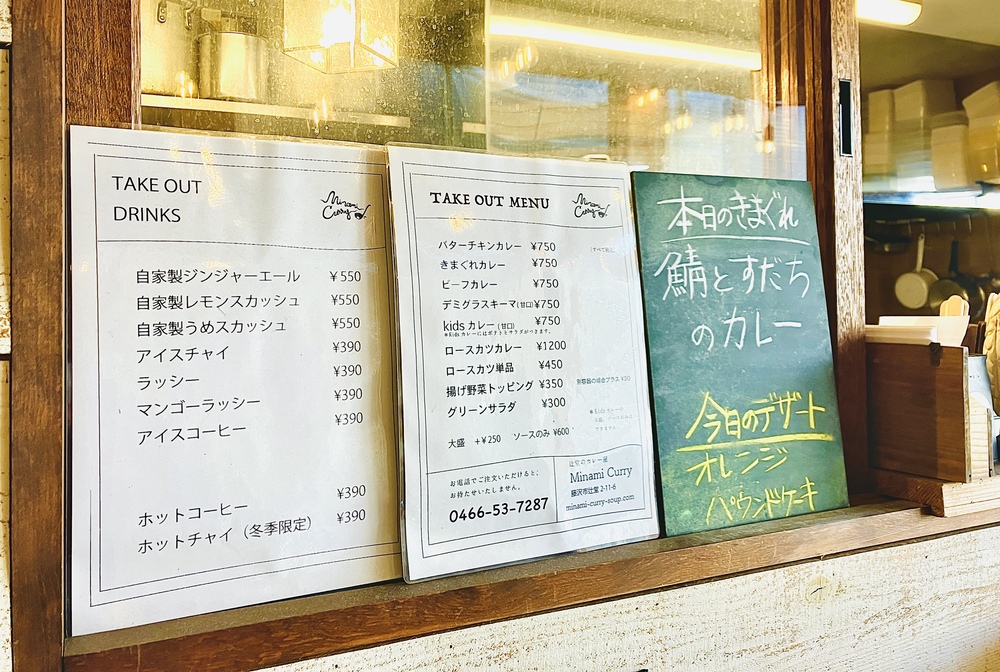 TAKE OUT
DRINKS
Minami Curry
自家製ジンジャーエール ¥550
自家製レモンスカッシュ ¥550
自家製うめスカッシュ ¥550
アイスチャイ ¥390
ラッシー ¥390
マンゴーラッシー ¥390
アイスコーヒー ¥390
ホットコーヒー ¥390
ホットチャイ（冬季限定） ¥390
TAKE OUT MENU
Minami Curry
バターチキンカレー ¥750
きまぐれカレー ¥750
ビーフカレー ¥750
デミグラスキーマ(甘口) ¥750
kids カレー(甘口) ¥750
※Kidsカレーにはポテトとサラダがつきます。
ロースカツカレー ¥1200
ロースカツ単品 ¥450
揚げ野菜トッピング ¥350
グリーンサラダ ¥300
大盛 +¥250 ソースのみ ¥600
お電話でご注文いただけると、
お待たせいたしません。
0466-53-7287
辻堂のカレー屋
Minami Curry
藤沢市辻堂 2-11-6
minami-curry-soup.com
本日のきまぐれ
鯖とすだち
のカレー
今日のデザート
オレンジ
パウンドケーキ